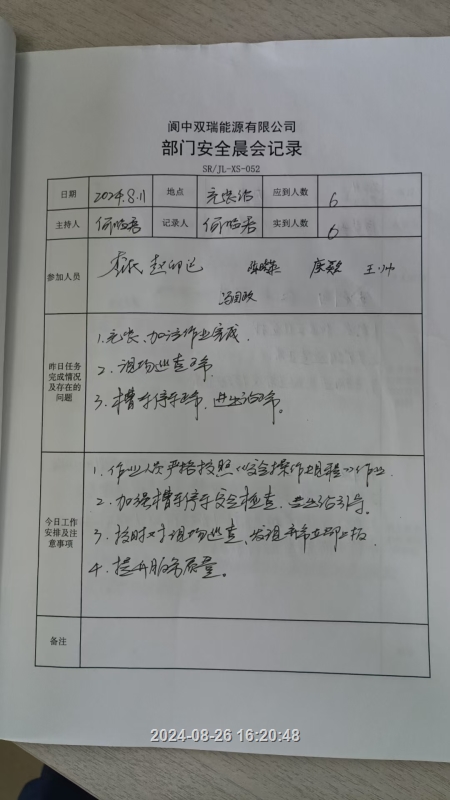 阆中双瑞能源有限公司
部门安全晨会记录
SR/JL-XS-052
日期 2024.8.11 地点 充装站 应到人数 6
主持人 记录人 实到人数 6
参加人员
冯国政
昨日任务完成情况及存在的问题
1.充装、加注作业完成
2.现场巡查正常
3.槽车停车正常、进出站正常。
今日工作安排及注意事项
1.作业人员严格按照《安全操作规程》作业
2.加强槽车停车安全检查、进出站引导。
3.按时对现场巡查、发现异常立即上报
4.提升服务质量。
备注
2024-08-26 16:20:48